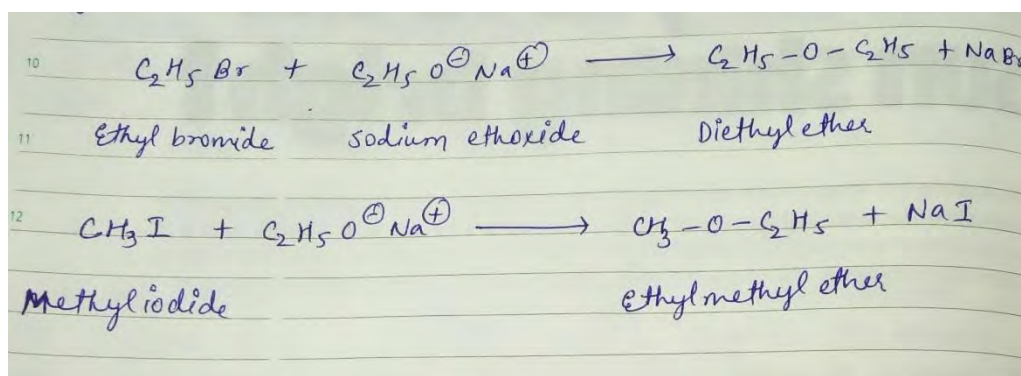 10 C₂H₅Br + C₂H₅O⊖Na⊕ ⟶ C₂H₅-O-C₂H₅ + NaBr
11 Ethyl bromide sodium ethoxide Diethyl ether
12 CH₃I + C₂H₅O⊖Na⊕ ⟶ CH₃-O-C₂H₅ + NaI
Methyl iodide Ethylmethyl ether